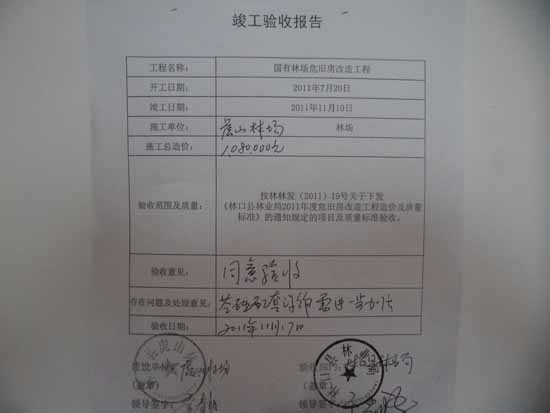 竣工验收报告
工程名称： 国有林场危旧房改造工程
开工日期： 2011年7月20日
竣工日期： 2011年11月10日
施工单位： 虎山林场 林场
施工总造价： 1,080,000元
按林林发（2011）19号关于下发
验收范围及质量： 《林口县林业局2011年度危旧房改造工程造价及质量
标准》的通知规定的项目及质量标准验收。
验收意见： 同意验收
存在问题及处理意见： 需进一步
验收日期： 2011年11月17日
林场
（盖章） （盖章）
领导签字： 领导签字：